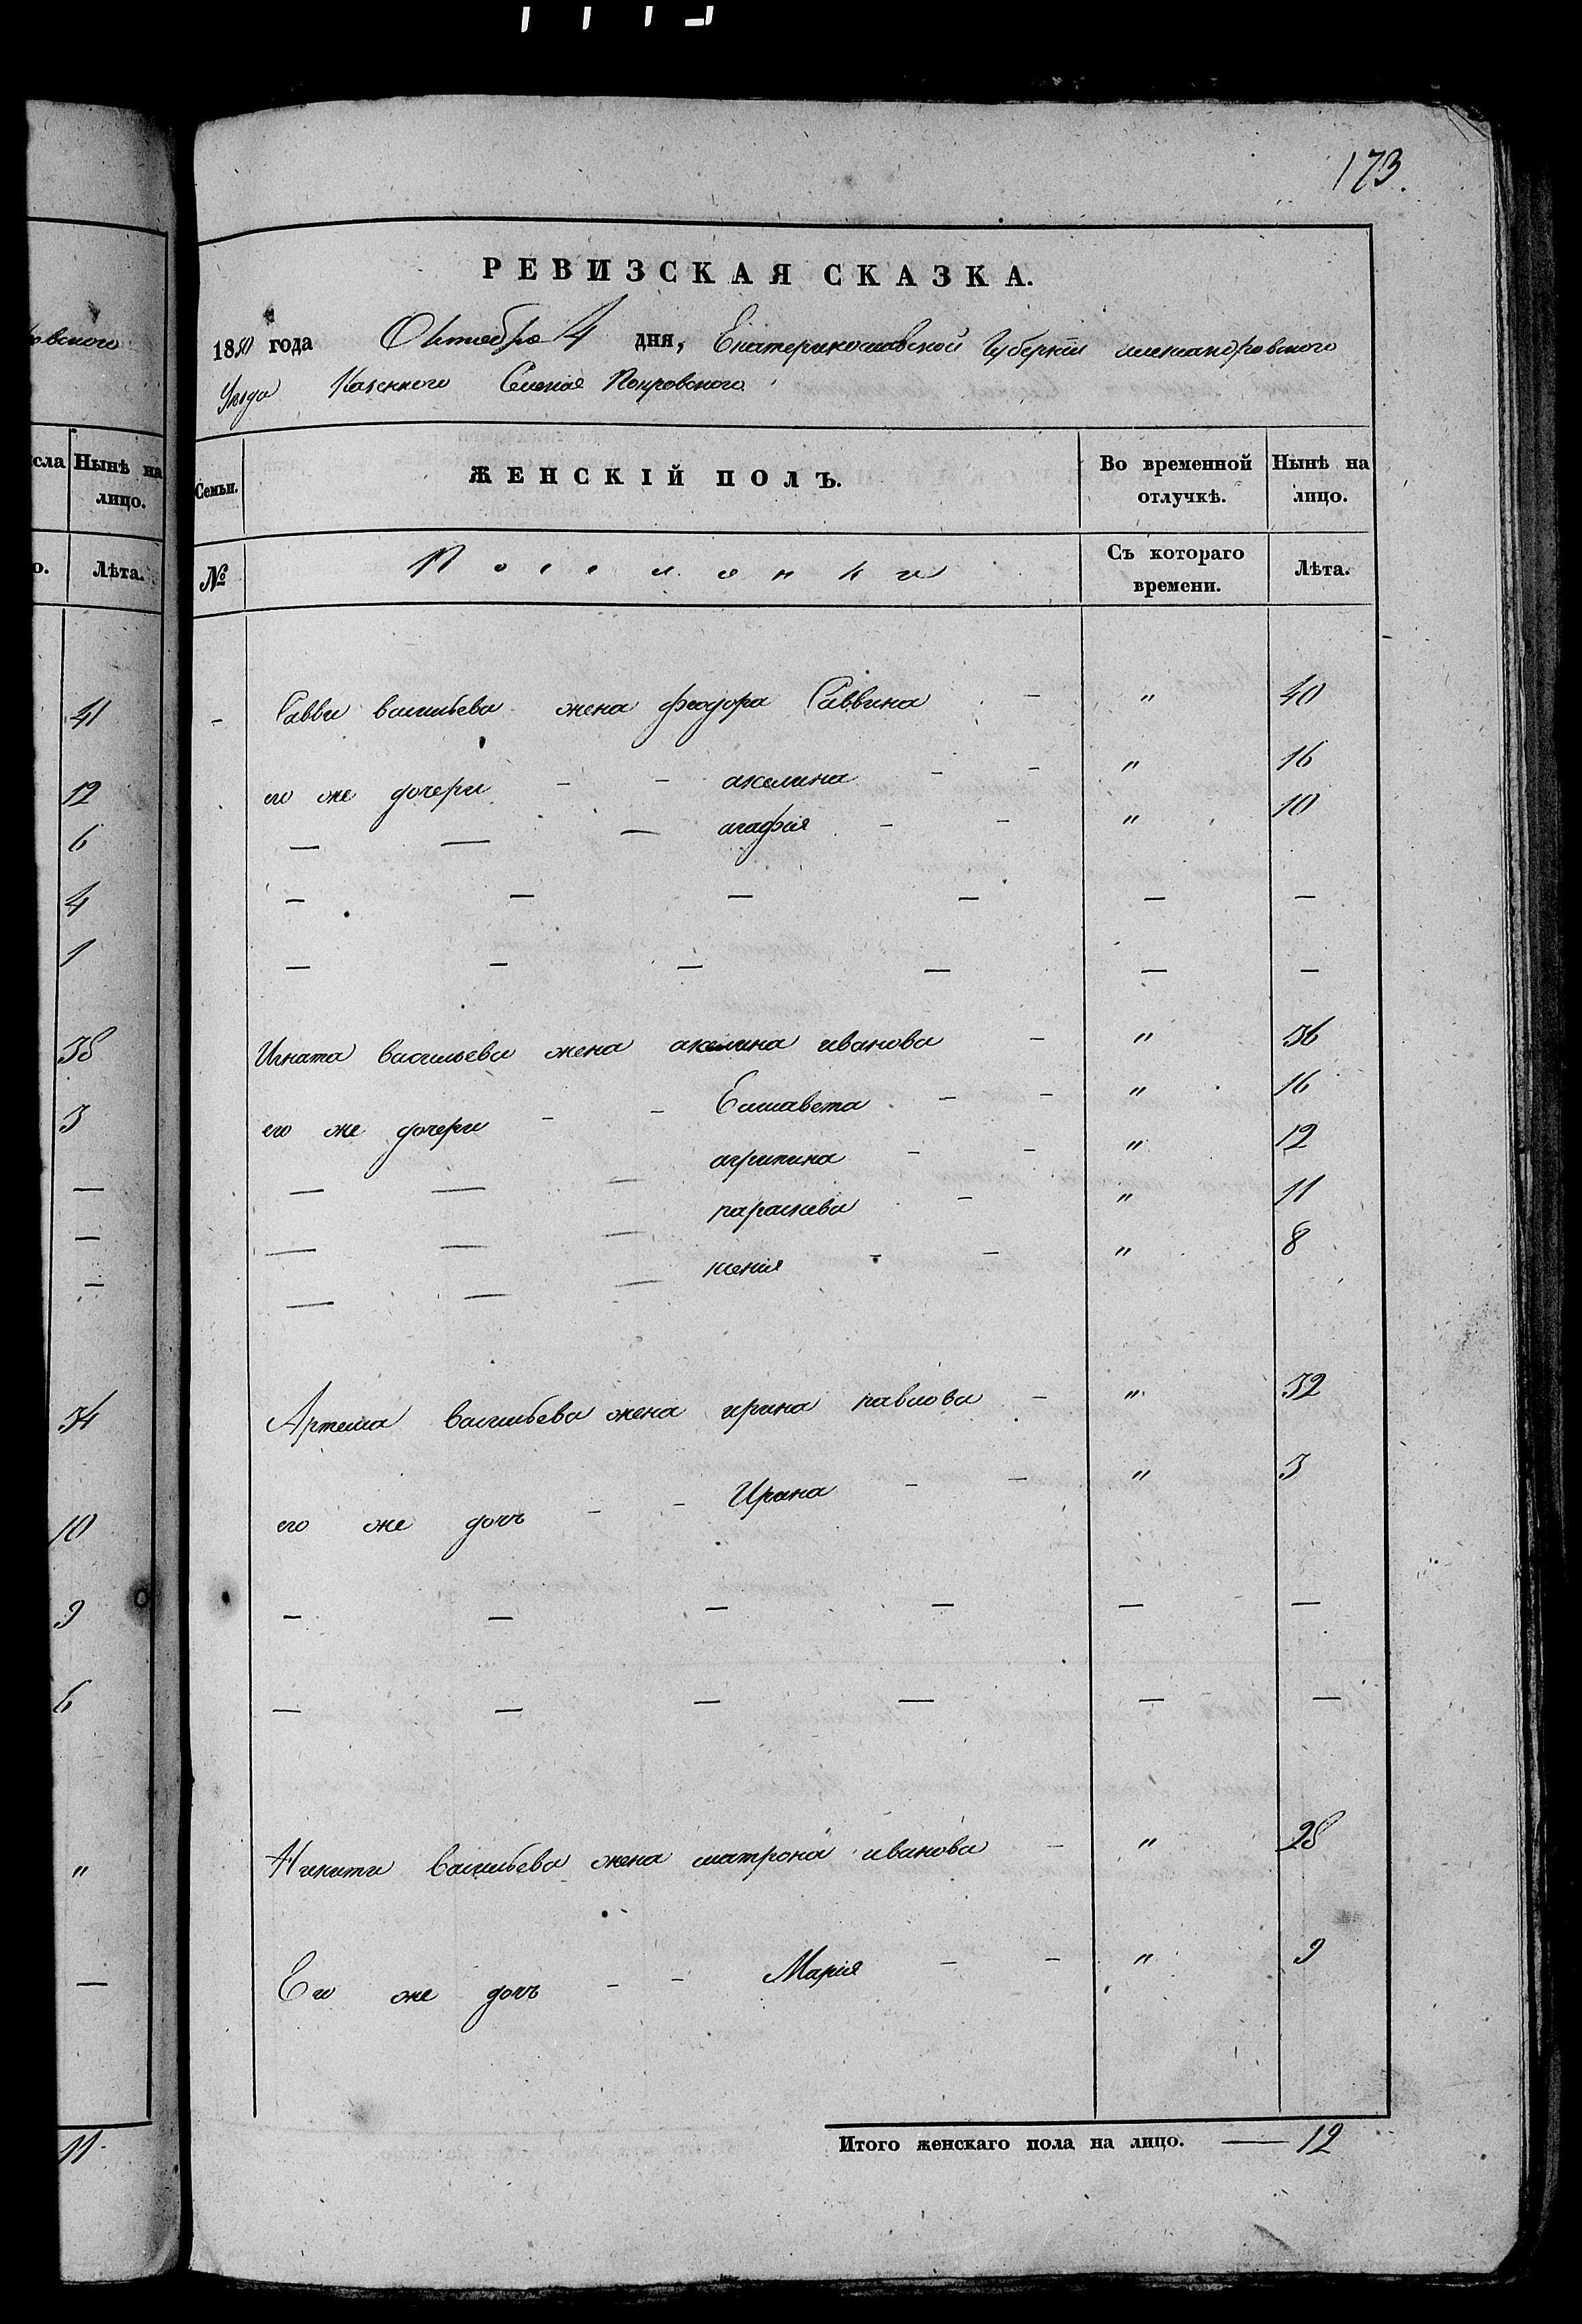 173.
РЕВИЗСКАЯ СКАЗКА.
1850 года Октября 4 дня, Екатеринославской Губернии александровского
Уезда Казенного Селения Покровского
ЖЕНСКІЙ ПОЛЪ.
Семьи.
Во временной отлучкѣ.
Нынѣ на лицо.
№
Поселянки
Съ котораго времени.
Лѣта.
Савви васильева жена феодора Саввина - " 40
его же дочери - - акелина - - " 16
— — — агафия - - " 10
— — — — — —
— — — — — —
Игната васильева жена акелина иванова - " 36
его же дочери - - Елисавета - - " 16
— — — агрипина - - " 12
— — — параскева - " 11
— — — ксения - - " 8
Артема васильева жена ирина павлова - " 32
его же дочь - - Ирина - - " 3
— — — — — —
— — — — — —
Никити васильева жена матрона иванова - " 28
Его же дочь - - Мария - - " 9
Итого женскаго пола на лицо. — 12
овского
сла
Нынѣ на лицо.
о.
Лѣта.
41
12
6
4
1
38
3
—
—
—
34
10
9
6
"
—
11.